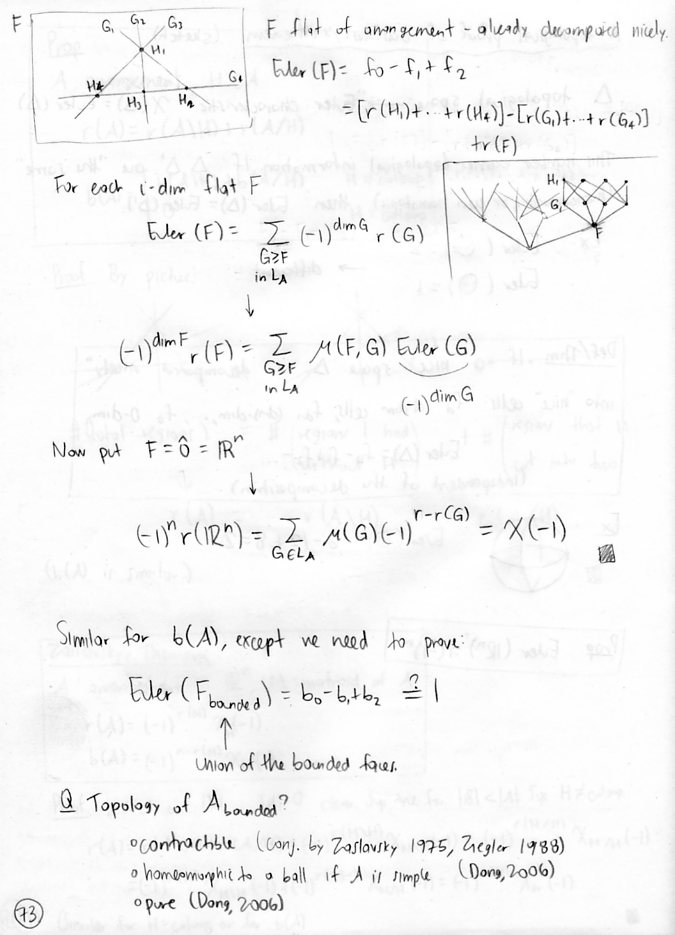 F
G₁ G₂ G₃
H₁
G₄
H₄ H₃ H₂
F flat of arrangement - already decomposed nicely.
Euler (F) = f₀ - f₁ + f₂
= [r(H₁)+...+r(H₄)]-[r(G₁)+...+r(G₄)]
+r(F)
H₁
G₁
F
For each i-dim flat F
Euler (F) = Σ (-1)^{dim G} r(G)
G≥F
in L_A
↓
(-1)^{dim F} r(F) = Σ μ(F,G) Euler (G)
G≥F
in L_A
(-1)^{dim G}
Now put F = 0̂ = ℝⁿ
↓
(-1)ⁿ r(ℝⁿ) = Σ μ(G)(-1)^{r-r(G)} = χ(-1)
G∈L_A
Similar for b(A), except we need to prove:
Euler (F_{bounded}) = b₀-b₁+b₂ ≟ 1
↑
union of the bounded faces.
Q Topology of A_{bounded}?
∘ contractible (conj. by Zaslavsky 1975, Ziegler 1988)
∘ homeomorphic to a ball if A is simple (Dong, 2006)
∘ pure (Dong, 2006)
73